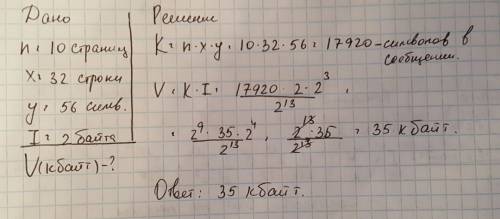 Дано
n = 10 страниц
x = 32 строки
y = 56 симв.
I = 2 байта
V(кбайт) - ?
Решение
K = n · x · y = 10 · 32 · 56 = 17920 - символов в сообщении.
V = K · I = 17920 · 2 · 2³ / 2¹³ =
= 2⁹ · 35 · 2⁴ / 2¹³ = 2¹³ · 35 / 2¹³ = 35 кбайт.
Ответ: 35 кбайт.